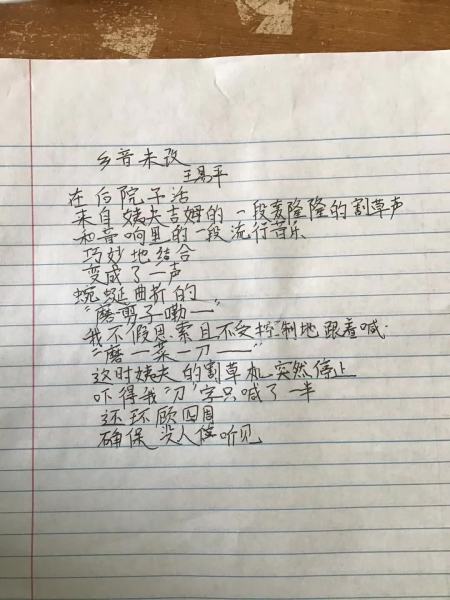 乡音未改
王易平
在后院干活
来自姨夫吉姆的一段轰隆隆的割草声
和音响里的一段流行音乐
巧妙地结合
变成了一声
蜿蜒曲折的
"磨剪子嘞—"
我不假思索且不受控制地跟着喊
"磨—菜—刀——"
这时姨夫的割草机突然停止
吓得我"刀"字只喊了一半
还环顾四周
确保没人听见